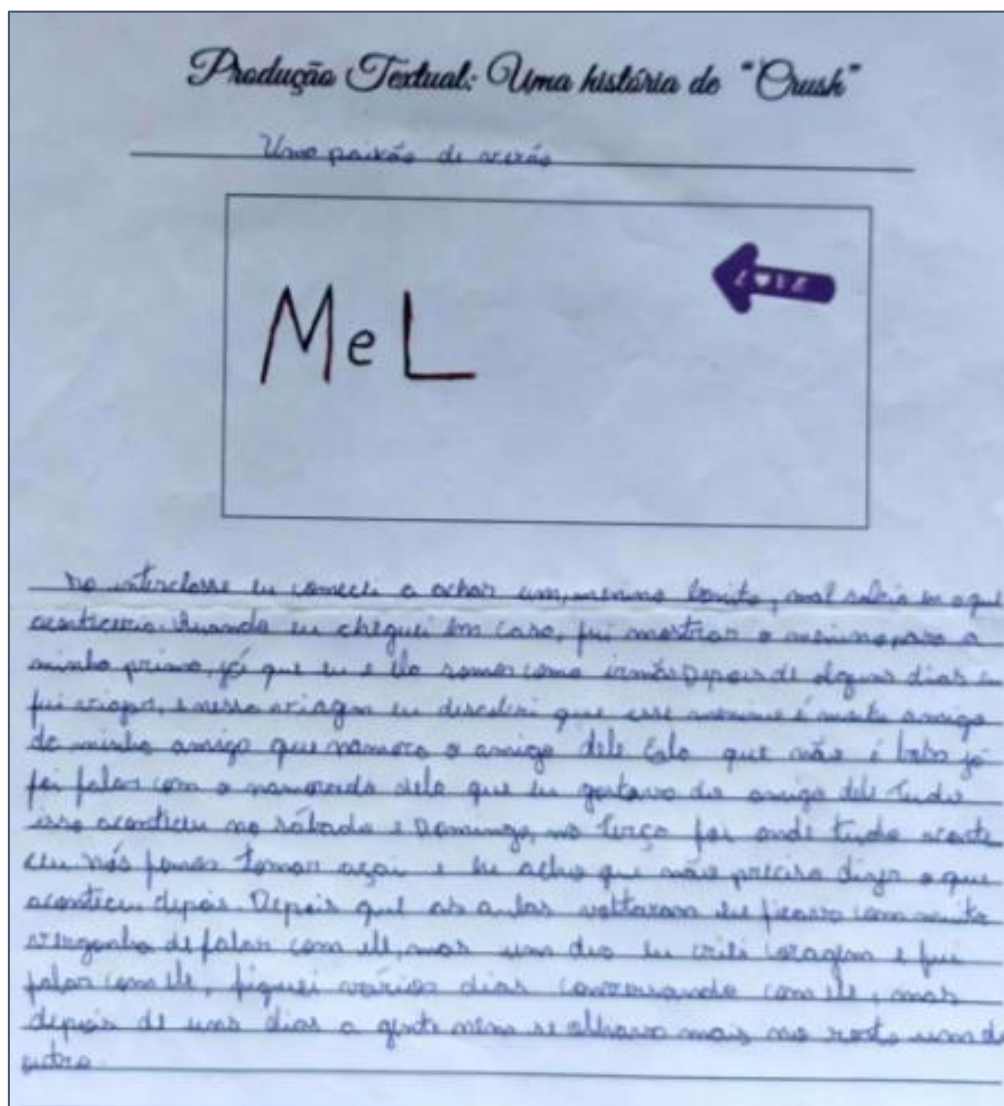 Produção Textual: Uma história de "Crush"
Uma paixão de verão
LOVE
MeL
No interclasse eu comecei a achar um menino bonito, mal sabia eu oque
aconteceria. Quando eu cheguei em casa, fui mostrar o menino para a
minha prima, já que eu e ela somos como irmãs Depois de alguns dias eu
fui viajar, e nessa viagem eu descobri que esse menino é muito amigo
da minha amiga que namora o amigo dele que não é já
foi falar com o namorado dela que eu gostava do amigo dele Tudo
isso aconteceu no sábado e Domingo, na Terça foi onde tudo aconte
ceu nós fomos tomar açai e eu acho que não precisa dizer o que
aconteceu depois. Depois que as aulas voltaram eu ficava com muita
vergonha de falar com ele, mas um dia eu criei coragem e fui
falar com ele, fiquei vários dias conversando com ele, mas
depois de uns dias a gente nem se olhava mais no rosto um do
outro.